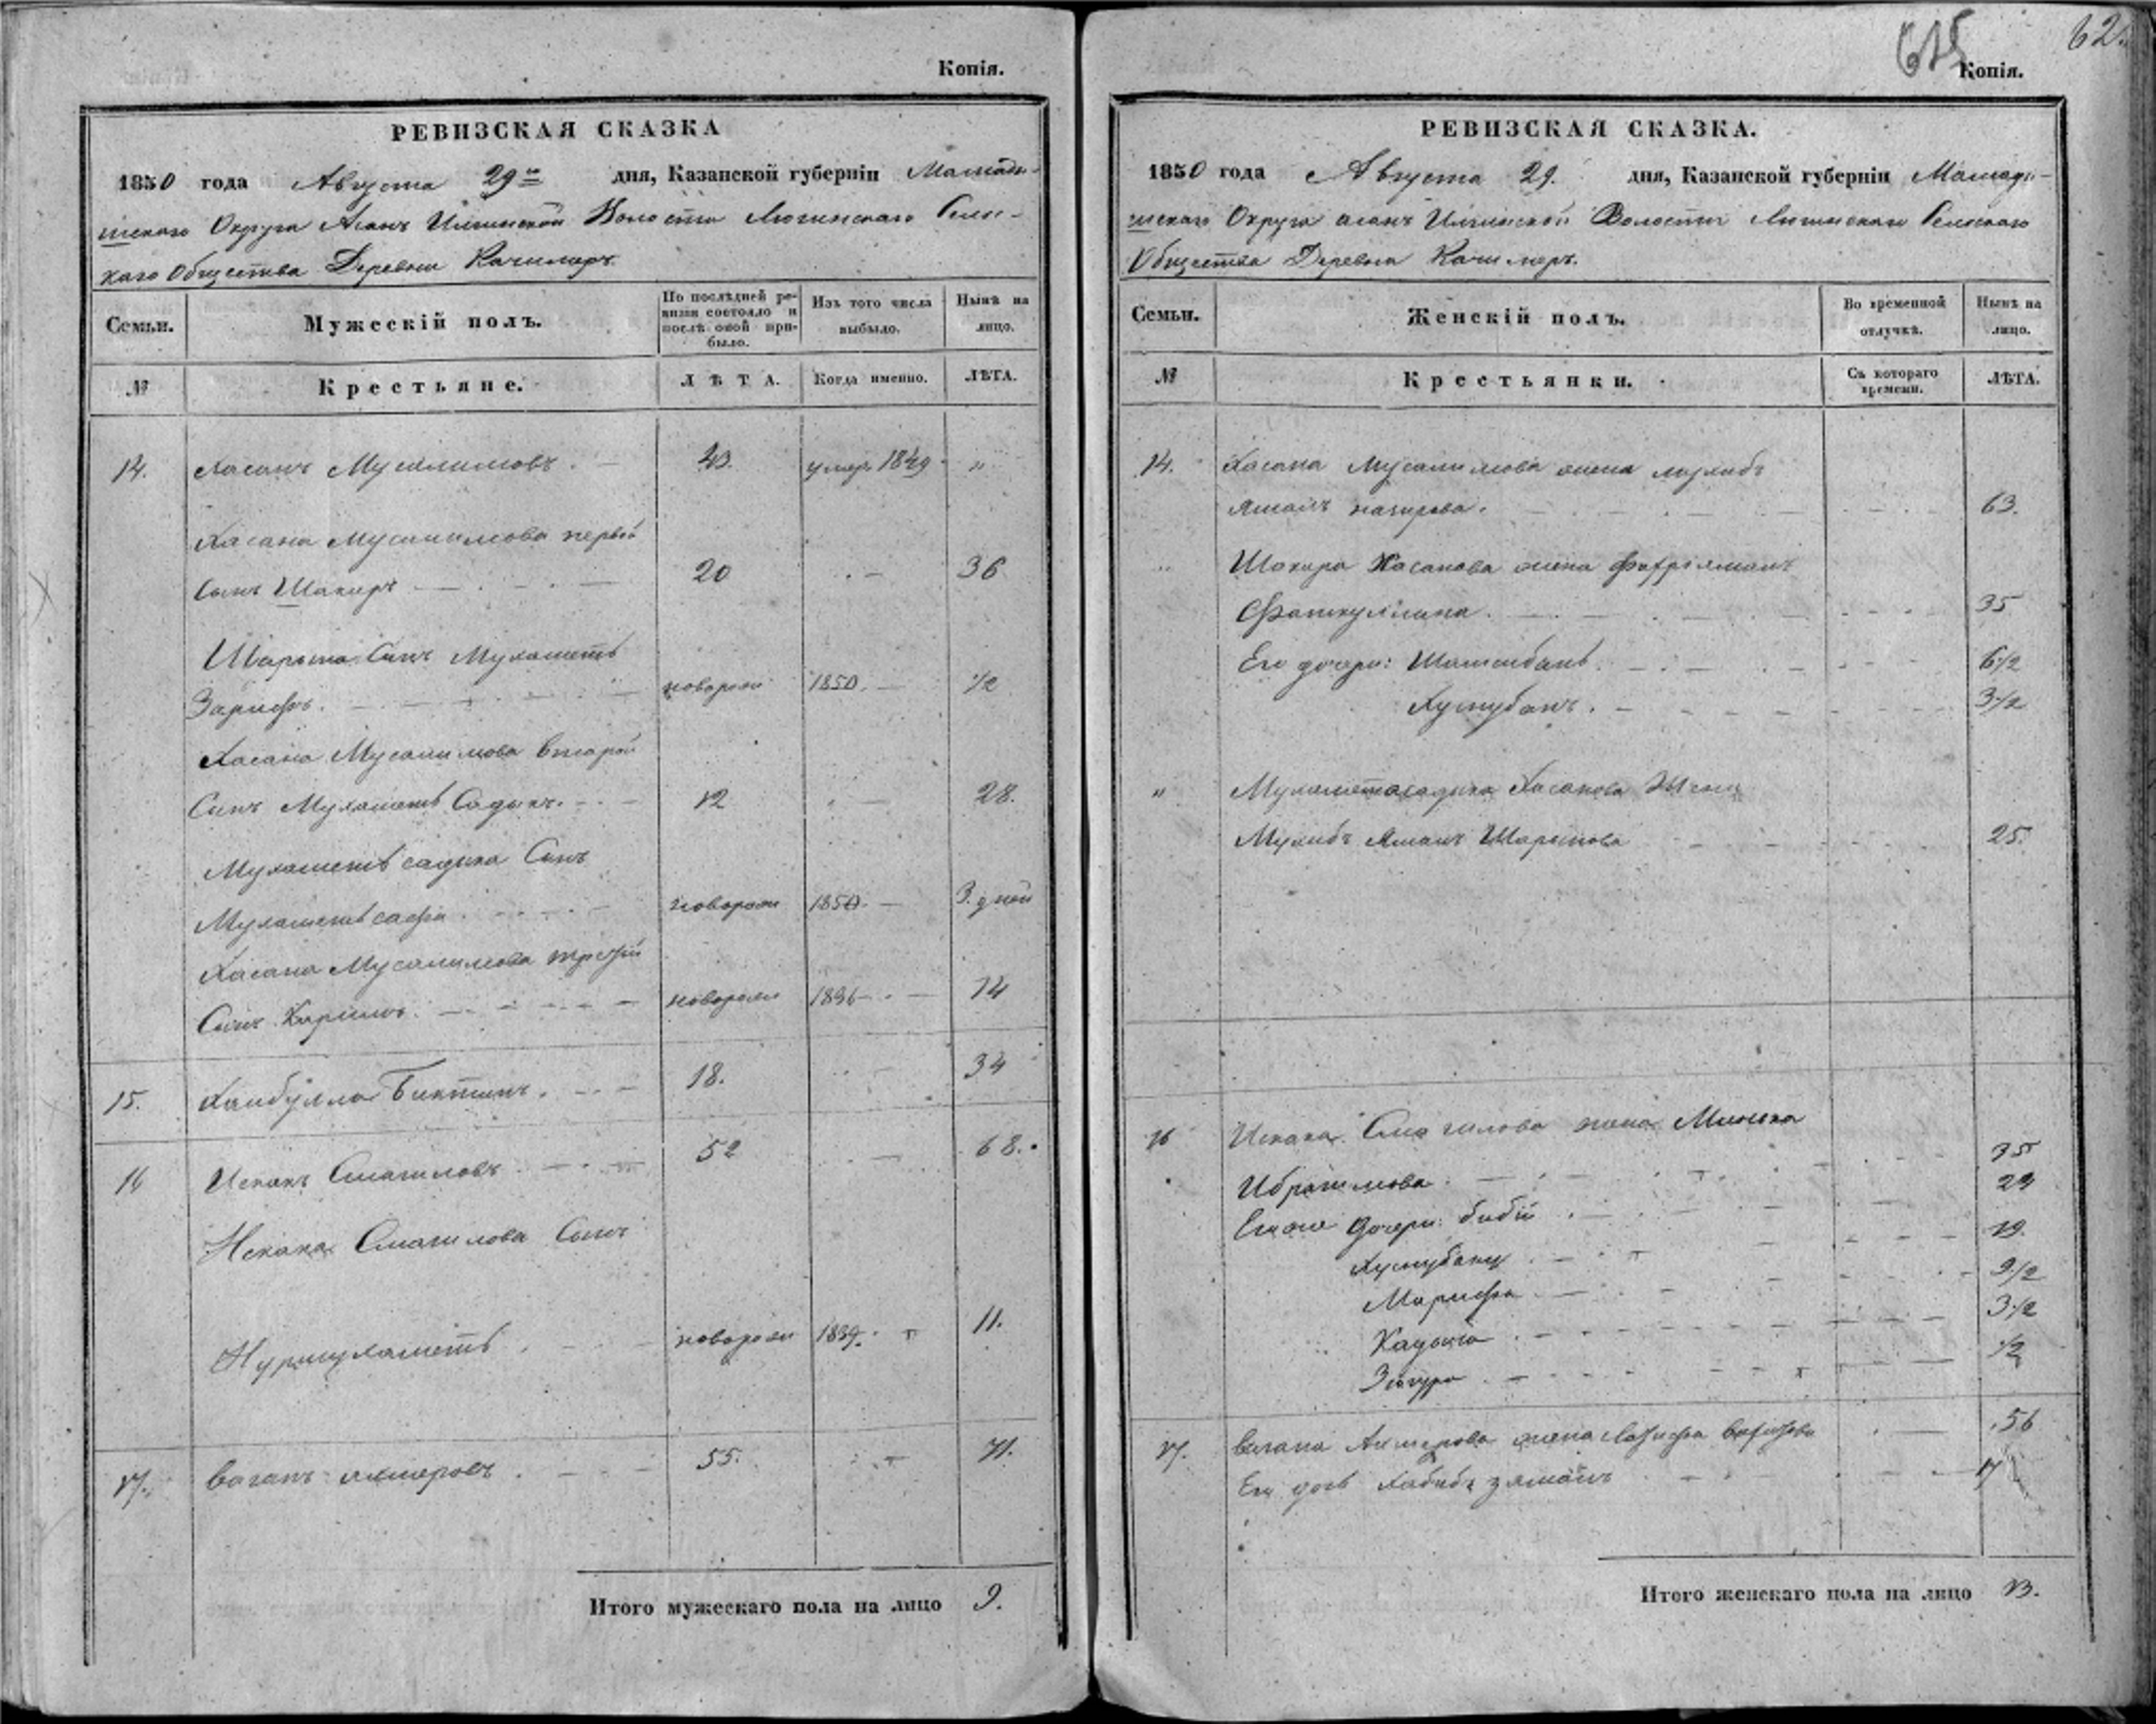 Копія.
РЕВИЗСКАЯ СКАЗКА
1850 года Августа 29го дня, Казанской губерніи Мамады-
шскаго Округа Асанъ Илгинской Волости Сельс-
каго Общества Деревни Качимеръ
Семьи.
Мужескій полъ.
По послѣдней ре-
визіи состояло и
послѣ оной при-
было.
Изъ того числа
выбыло.
Нынѣ на
лицо.
№
Крестьяне.
ЛѢТА.
Когда именно.
ЛѢТА.
14. Хасанъ Мусалимовъ. 43. умер. 1849 "
Хасана Мусалимова первой
Сынъ Шакиръ 20 36
Сынъ Мухаметъ
Зарифъ. новорож 1850. 1/2
Хасана Мусалимова второй
Сынъ Мухаметъ Садыкъ. 12 28.
Мухаметъ садыка Сынъ
Мухаметъ сафа новорож 1850. 3. дней
Хасана Мусалимова третій
Сынъ Каримъ. новорож 1836 14
15. Хаибулла Биктинъ. 18. 34
16 Искакъ Смагиловъ 52 68.
Искака Смагилова Сынъ
Нурмухаметъ новорож 1839. 11.
17. Ваганъ Ахмеровъ. 55. 71.
Итого мужескаго пола на лицо 9.
615
62.
Копія.
РЕВИЗСКАЯ СКАЗКА.
1850 года Августа 29. дня, Казанской губерніи Мамады-
шскаго Округа асанъ Илгинской Волости Сельскаго
Общества Деревни Качимеръ.
Семьи.
Женскій полъ.
Во временной
отлучкѣ.
Нынѣ на
лицо.
№
Крестьянки.
Съ котораго
времени.
ЛѢТА.
14. Хасана Мусалимова жена
63.
Шакира Хасанова жена
Фаткуллина. 35
Его дочери: Шамсибанъ. 6 1/2
Хуснубанъ. 3 1/2
" Мухаметсадыка Хасанова жена
Мухибъ Яманъ Шарипова 25.
16 Искака Смагилова жена
Ибрагимова. 35
Его же дочери: биби 29
Хуснубану 19.
Марифа 9 1/2
Кадыча 3 1/2
Загура 1/2
17. Вагана Ахмерова жена 56
Его дочь Хабибъ зяманъ 17
Итого женскаго пола на лицо 13.